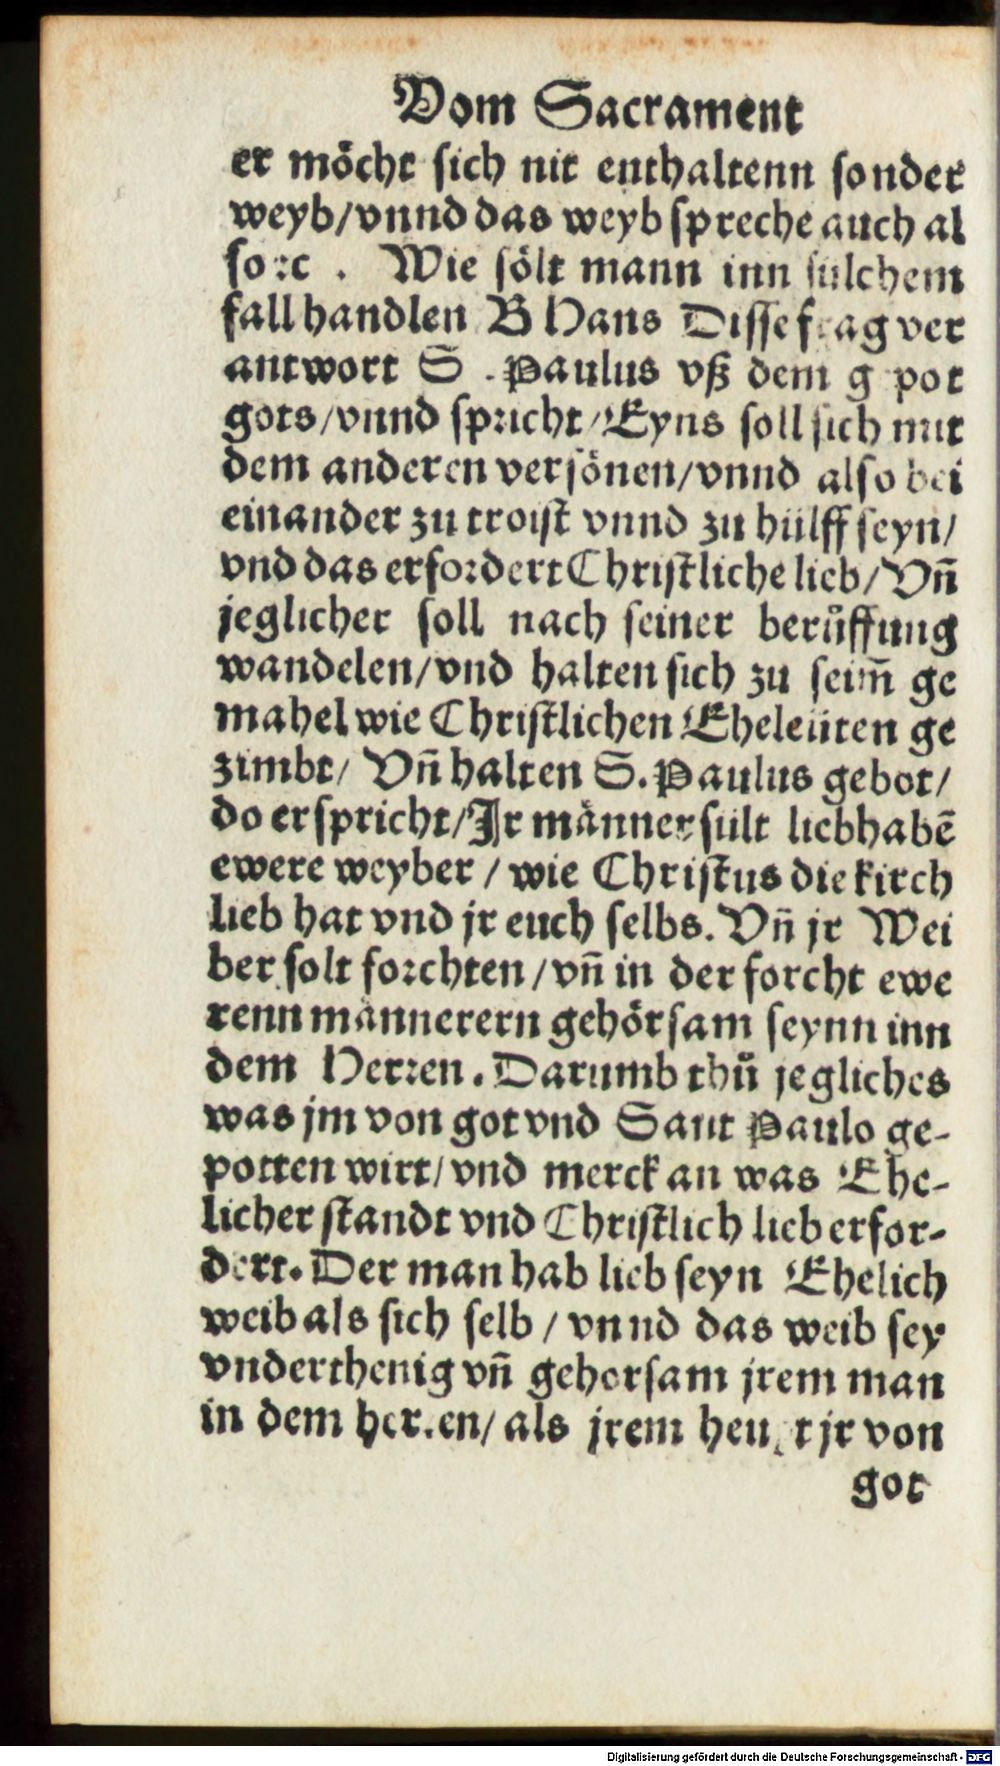 Vom Sacrament
er möcht sich nit enthaltenn sonder
weyb/vnnd das weyb spreche auch al
so ꝛc . Wie sölt mann inn sülchem
fall handlen B Hans Disse frag ver
antwort S . Paulus vß dem g pot
gots/vnnd spricht/Eyns soll sich mit
dem anderen versönen/vnnd also bei
einander zu troist vnnd zu hülff seyn/
vnd das erfordert Christliche lieb/Vñ
jeglicher soll nach seiner berůffung
wandelen/vnd halten sich zu seim̃ ge
mahel wie Christlichen Eheleüten ge
zimbt/ Vñ halten S. Paulus gebot/
do er spricht/Jr männer sült liebhabē
ewere weyber / wie Christus die kirch
lieb hat vnd jr euch selbs. Vñ jr Wei
ber solt forchten/vñ in der forcht ewe
renn männerern gehörsam seynn inn
dem Herren. Darumb thů jegliches
was jm von got vnd Sant Paulo ge-
potten wirt/vnd merck an was Ehe-
licher standt vnd Christlich lieb erfor-
dert. Der man hab lieb seyn Ehelich
weib als sich selb / vnnd das weib sey
vnderthenig vñ gehorsam jrem man
in dem herren/ als jrem jr von
got
Digitalisierung gefördert durch die Deutsche Forschungsgemeinschaft - DFG